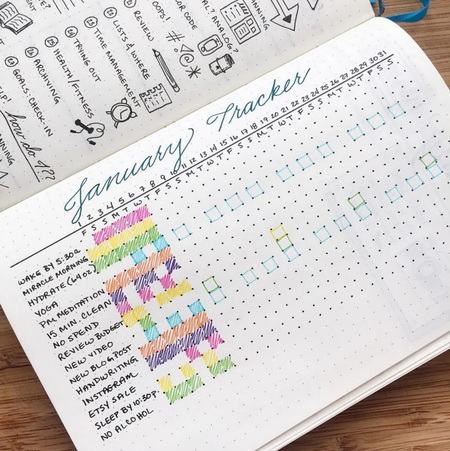 REVIEW
OOPS!
LISTS & WHERE
TIME MANAGEMENT
TRYING OUT
HEALTH/FITNESS
ARCHIVING
GOALS: CHECK-IN
how do I???
#!*@
January Tracker
1 2 3 4 5 6 7 8 9 10 11 12 13 14 15 16 17 18 19 20 21 22 23 24 25 26 27 28 29 30 31
F S S M T W T F S S M T W T F S S M T W T F S S M T W T F S S
WAKE BY 5:30A
MIRACLE MORNING
HYDRATE (64 OZ)
YOGA
PM MEDITATION
15 MIN. CLEAN
NO SPEND
REVIEW BUDGET
NEW VIDEO
NEW BLOG POST
HANDWRITING
INSTAGRAM
ETSY SALE
SLEEP BY 10:30P
NO ALCOHOL